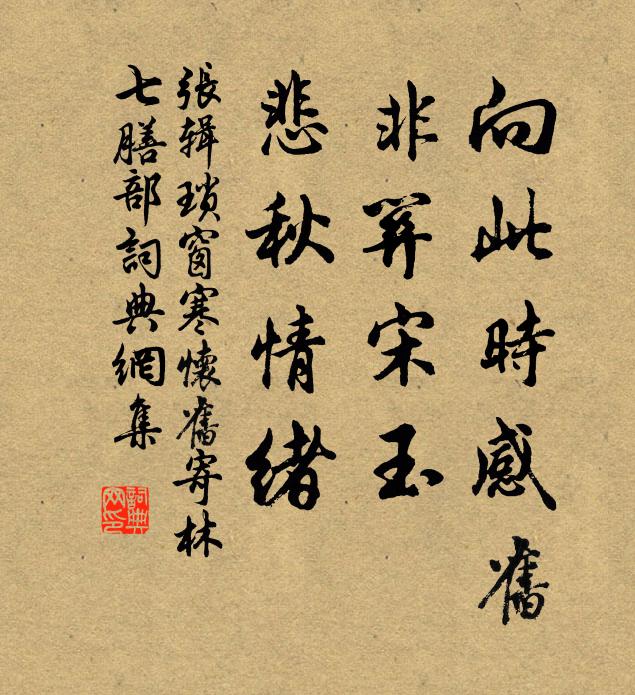 向此時感舊
非筭宋玉
悲秋情緒
張輯瑣窗寒懷舊寄林
七膳部詞典網集
詞典网印